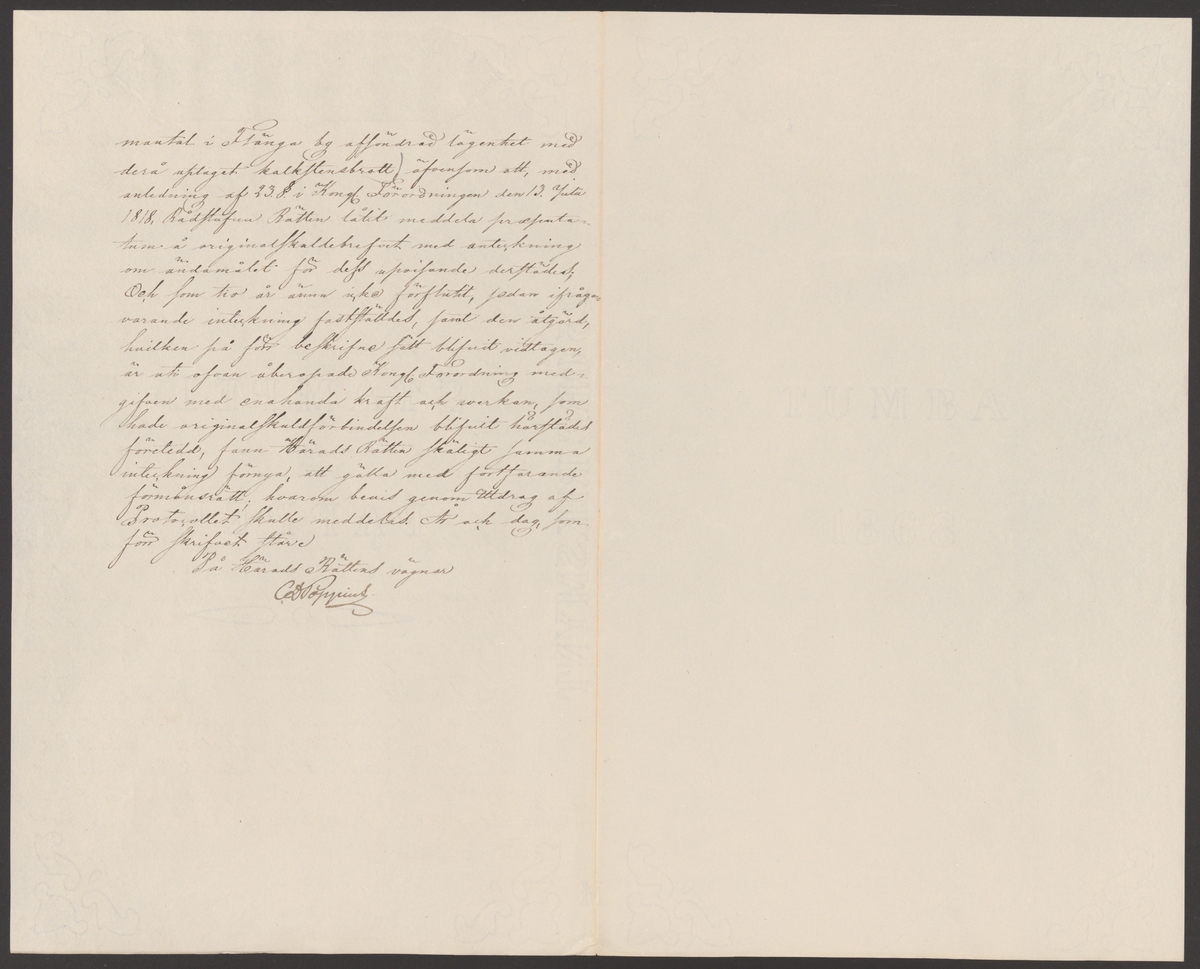 mantal i Flänga by afsöndrad lägenhet med
derå uptaget kalkstensbrott) äfvensom att, med
anledning af 23. §. i Kongl. Förordningen den 13. Julii
1818, Rådstufvu Rätten låtit meddela præsenta-
tum å originalskuldebrefvet med anteckning
om ändamålet för dess upvisande derstädes;
Och som tio år ännu icke förflutit, sedan ifråga-
varande inteckning fastställdes, samt den åtgärd,
hvilken på förr beskrifne sätt blifvit vidtagen,
är uti ofvan åberopade Kongl. Förordning med-
gifven med enahanda kraft och verkan, som
hade originalskuldförbindelsen blifvit härstädes
företedd, fann Härads Rätten skäligt samma
inteckning förnya, att gälla med fortfarande
förmånsrätt; hvarom bevis genom Utdrag af
Protocollet skulle meddelas. År och dag, som
förr skrifvet står.
På Härads Rättens vägnar
CDPoppius